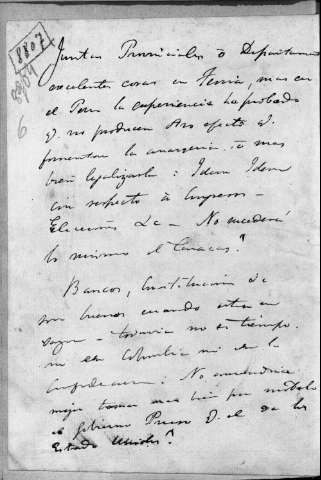 8807
3989
6
Juntas Provinciales o Departament
excelentes cosas en Teoria, mas en
el Peru la experiencia ha probado
q. no producen otro efecto q.
fomentar la anarquia, o mas
bien legalizarla: Idem Idem
con respecto à Congresos -
Elecciones &c - No sucederá
lo mismo el Caracas?
Bancos, Constitucion &c
son buenos cuando estan en
- todavia no es tiempo.
ni en Colombia ni en la
Confederacion: No
mejor tomar mas bien por modelo
el gobierno q. el de los
Estados Unidos?